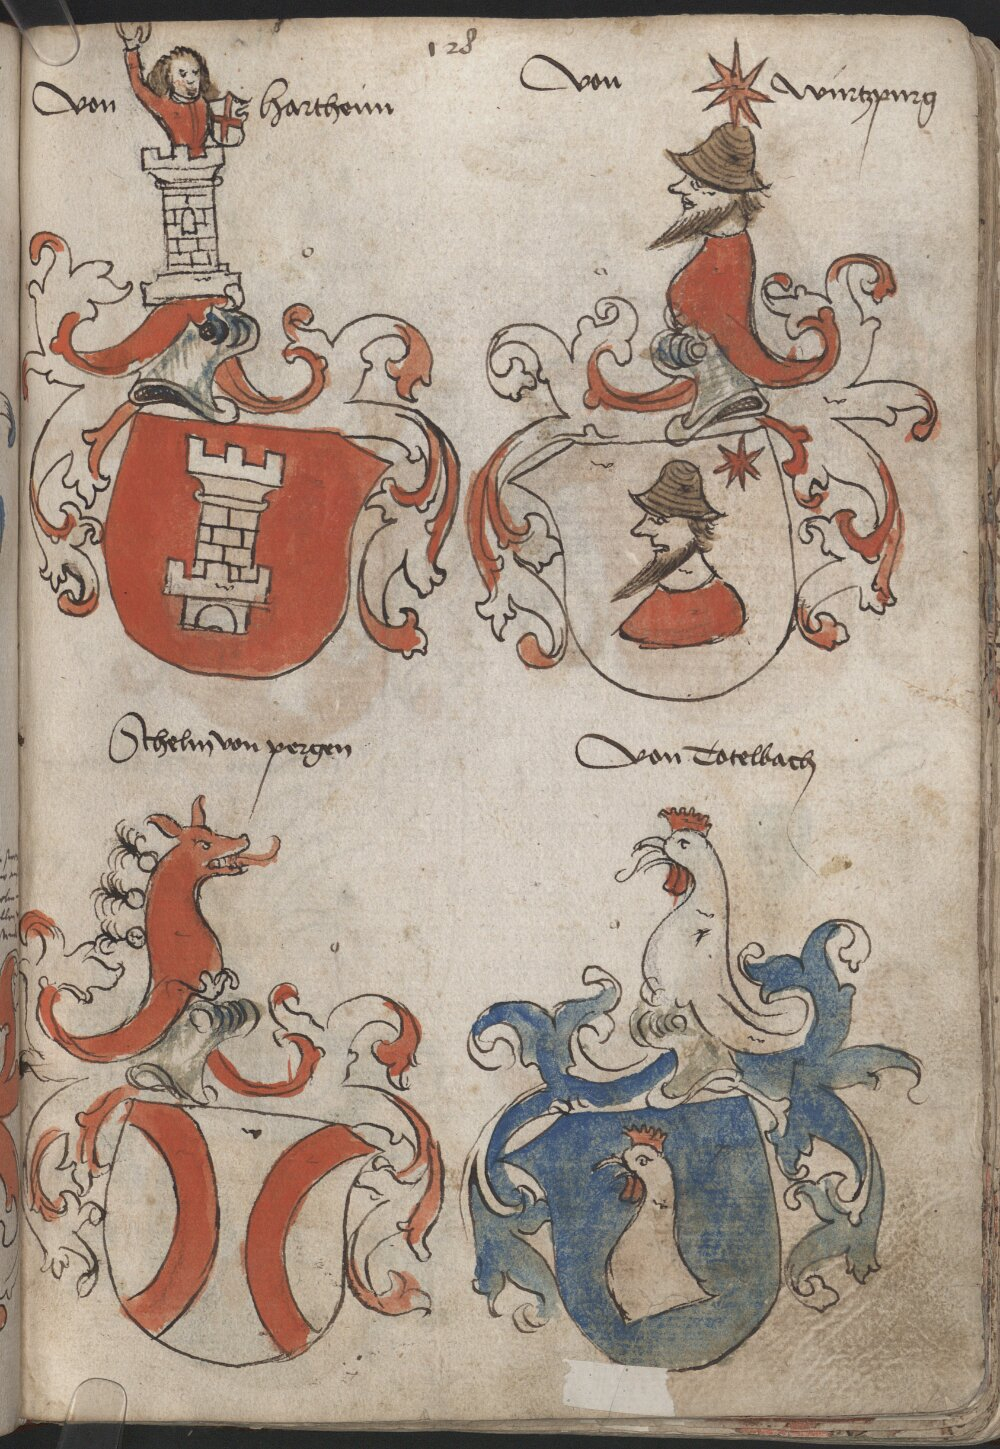 128
von hartheim
von würtzpurg
Schelm von pergen
von Totelbach